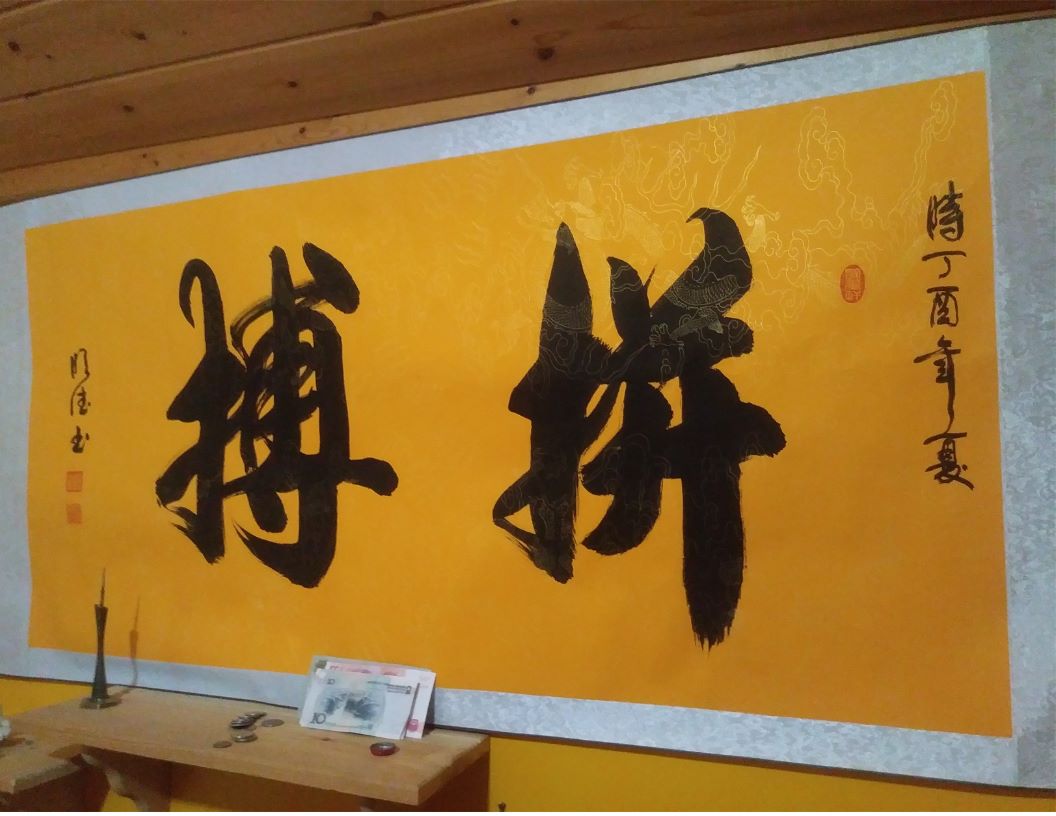 時丁酉年夏
拼搏
明德书
10